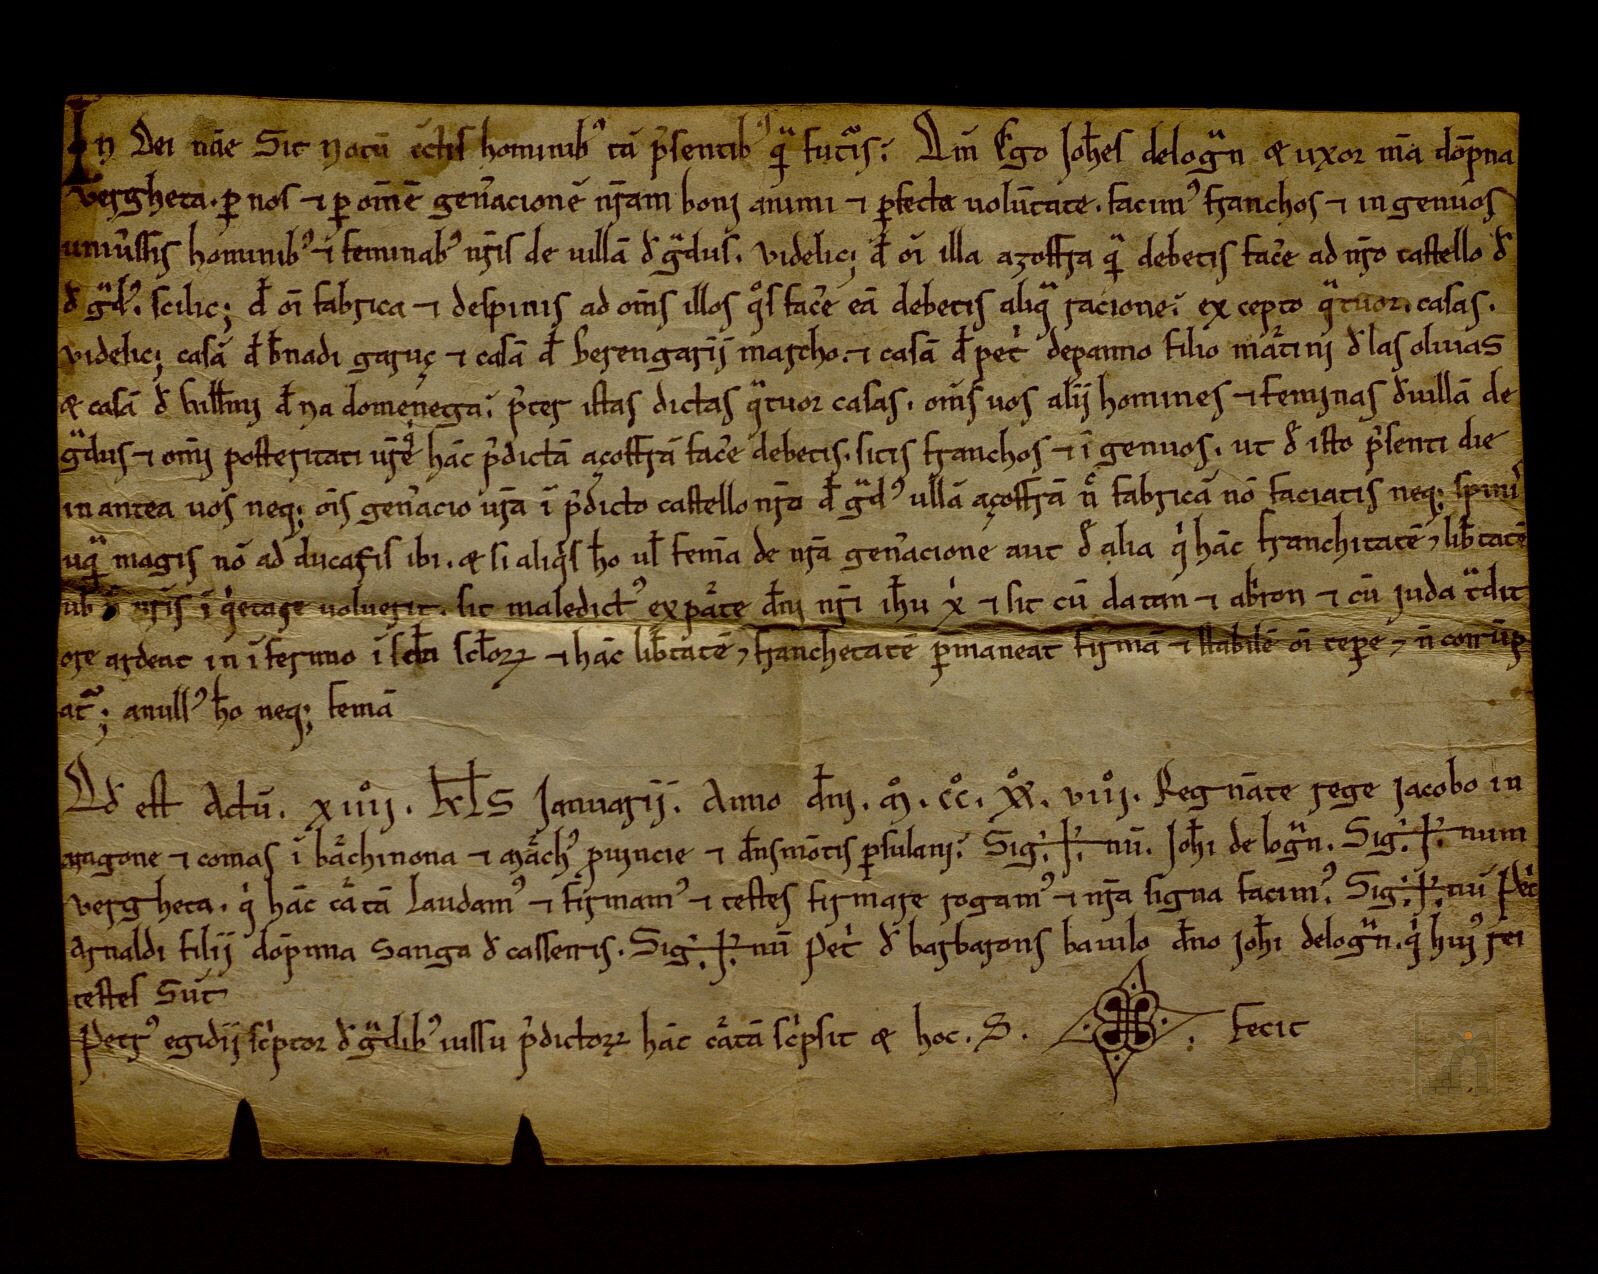 In Dei nȏe Sit Notū cūctis hominibꝰ tā p̄sentibꝰ qᵃ̄ futᵃis. Qm̄ Ego Joħes delogᵃn & uxor mā dōpna
Vergheta. ꝑ nos ⁊ ꝑ om̄ē gen̄acionē nr̄am bonj animi ⁊ ꝑfecta uolūtate. facimꝰ franchos ⁊ in genuos
uniũssis hominibꝰ ⁊ feminabꝰ nr̄is de uillā đ gᵃdus. Videlicꝫ đ oī illa azoffra qᵃ̄ debetis fac̄e ad nr̄o castello đ
đ gᵃdꝰ. scilicꝫ đ oī fabrica ⁊ despinis ad om̄s illos qᵒs fac̄e eā debetis aliqᵃ racione. ex cepto qᵃtuor. casas.
Videlicꝫ casā đ b̄nadi garuç ⁊ casā đ berengarij marcho. ⁊ casā đ pet̄ depanno filio mᵃrtinj đ las oliuas
& casā đ Vuilłmj đ na domenega. p̄ter istas dictas qᵃtuor casas. om̄s uos alij homines ⁊ feminas đ uillā de
gᵃdus ⁊ om̄j posteritati ur̄e qⁱ hāc p̄dictā açoffrā fac̄e debetis. sitis franchos ⁊ ī genuos. ut đ isto p̄senti die
in antea uos neqꝫ oīs gen̄acio ur̄a ī p̄dicto castello nr̄o đ gᵃdꝰ ullā açoffrā n̄ fabricā nō faciatis neqꝫ spinis
uqᵃ̄ magis nō ad ducatis ibi. & si aliqⁱs ħo uł femīa de nr̄a gen̄acione aut đ alia qⁱ hāc franchitatē ⁊ lib̄tatē
nr̄is ī qⁱetare uoluerit. sit maledictꝰ ex pᵃrte đnj nr̄i iħu x̄ ⁊ sit cū datan ⁊ abiron ⁊ cū juda tᵃdit
ore ardeat in īferno ī scła scłorꝝ ⁊ hāc lib̄tatē ⁊ franchetatē ꝑmaneat firmā ⁊ stabilē oī tēpe ⁊ n̄ corrūp
atᵃꝫ anullꝰ ħo neqꝫ femīā
Qđ est Actū. xiiij. kłs Januarij. Anno đnj. m̊. c̊c. x̊x. viij. Regnāte rege Jacobo in
aragone ⁊ comas ī bᵃrchinona ⁊ mᵃrchꝰ ꝓuincie ⁊ đns mōtis ꝑsulanj. Sig ✝ nū. Joħi de logᵃn. Sig ✝ num
vergheta. qⁱ hāc cᵃrtā laudamꝰ ⁊ firmamꝰ ⁊ testes firmare rogamꝰ ⁊ nr̄a signa facimꝰ. Sig ✝ nū Pet̄
arnaldi filij dōpnna Sanga đ cassenis. Sig ✝ nū pet̄ đ barbarons baiulo đno Joħi delogᵃn. qⁱ hujꝰ rei
testes Sūt
Petrꝰ egidij sc̄ptor đ gᵃdibꝰ iussu p̄dictorꝝ hāc cᵃrtā sc̄psit & hoc. S. fecit